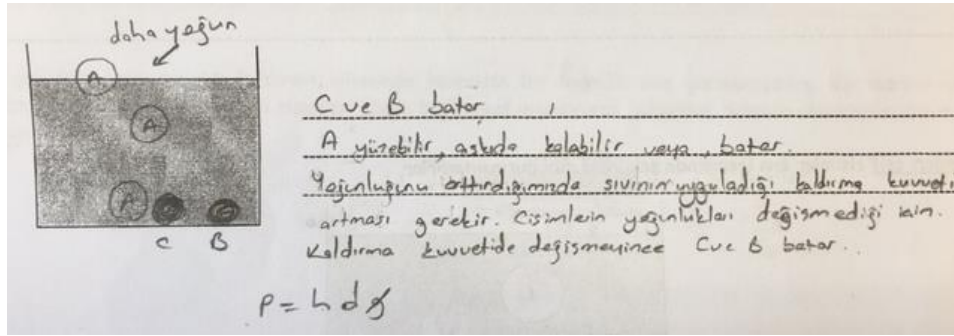 daha yoğun
A
A
A
C B
C ve B batar
A yüzebilir, askıda kalabilir veya, batar.
Yoğunluğunu arttırdığımızda sıvının uyguladığı kaldırma kuvveti
artması gerekir. Cisimlerin yoğunlukları değişmediği için.
Kaldırma kuvvetide değişmeyince C ve B batar..
P = h d g